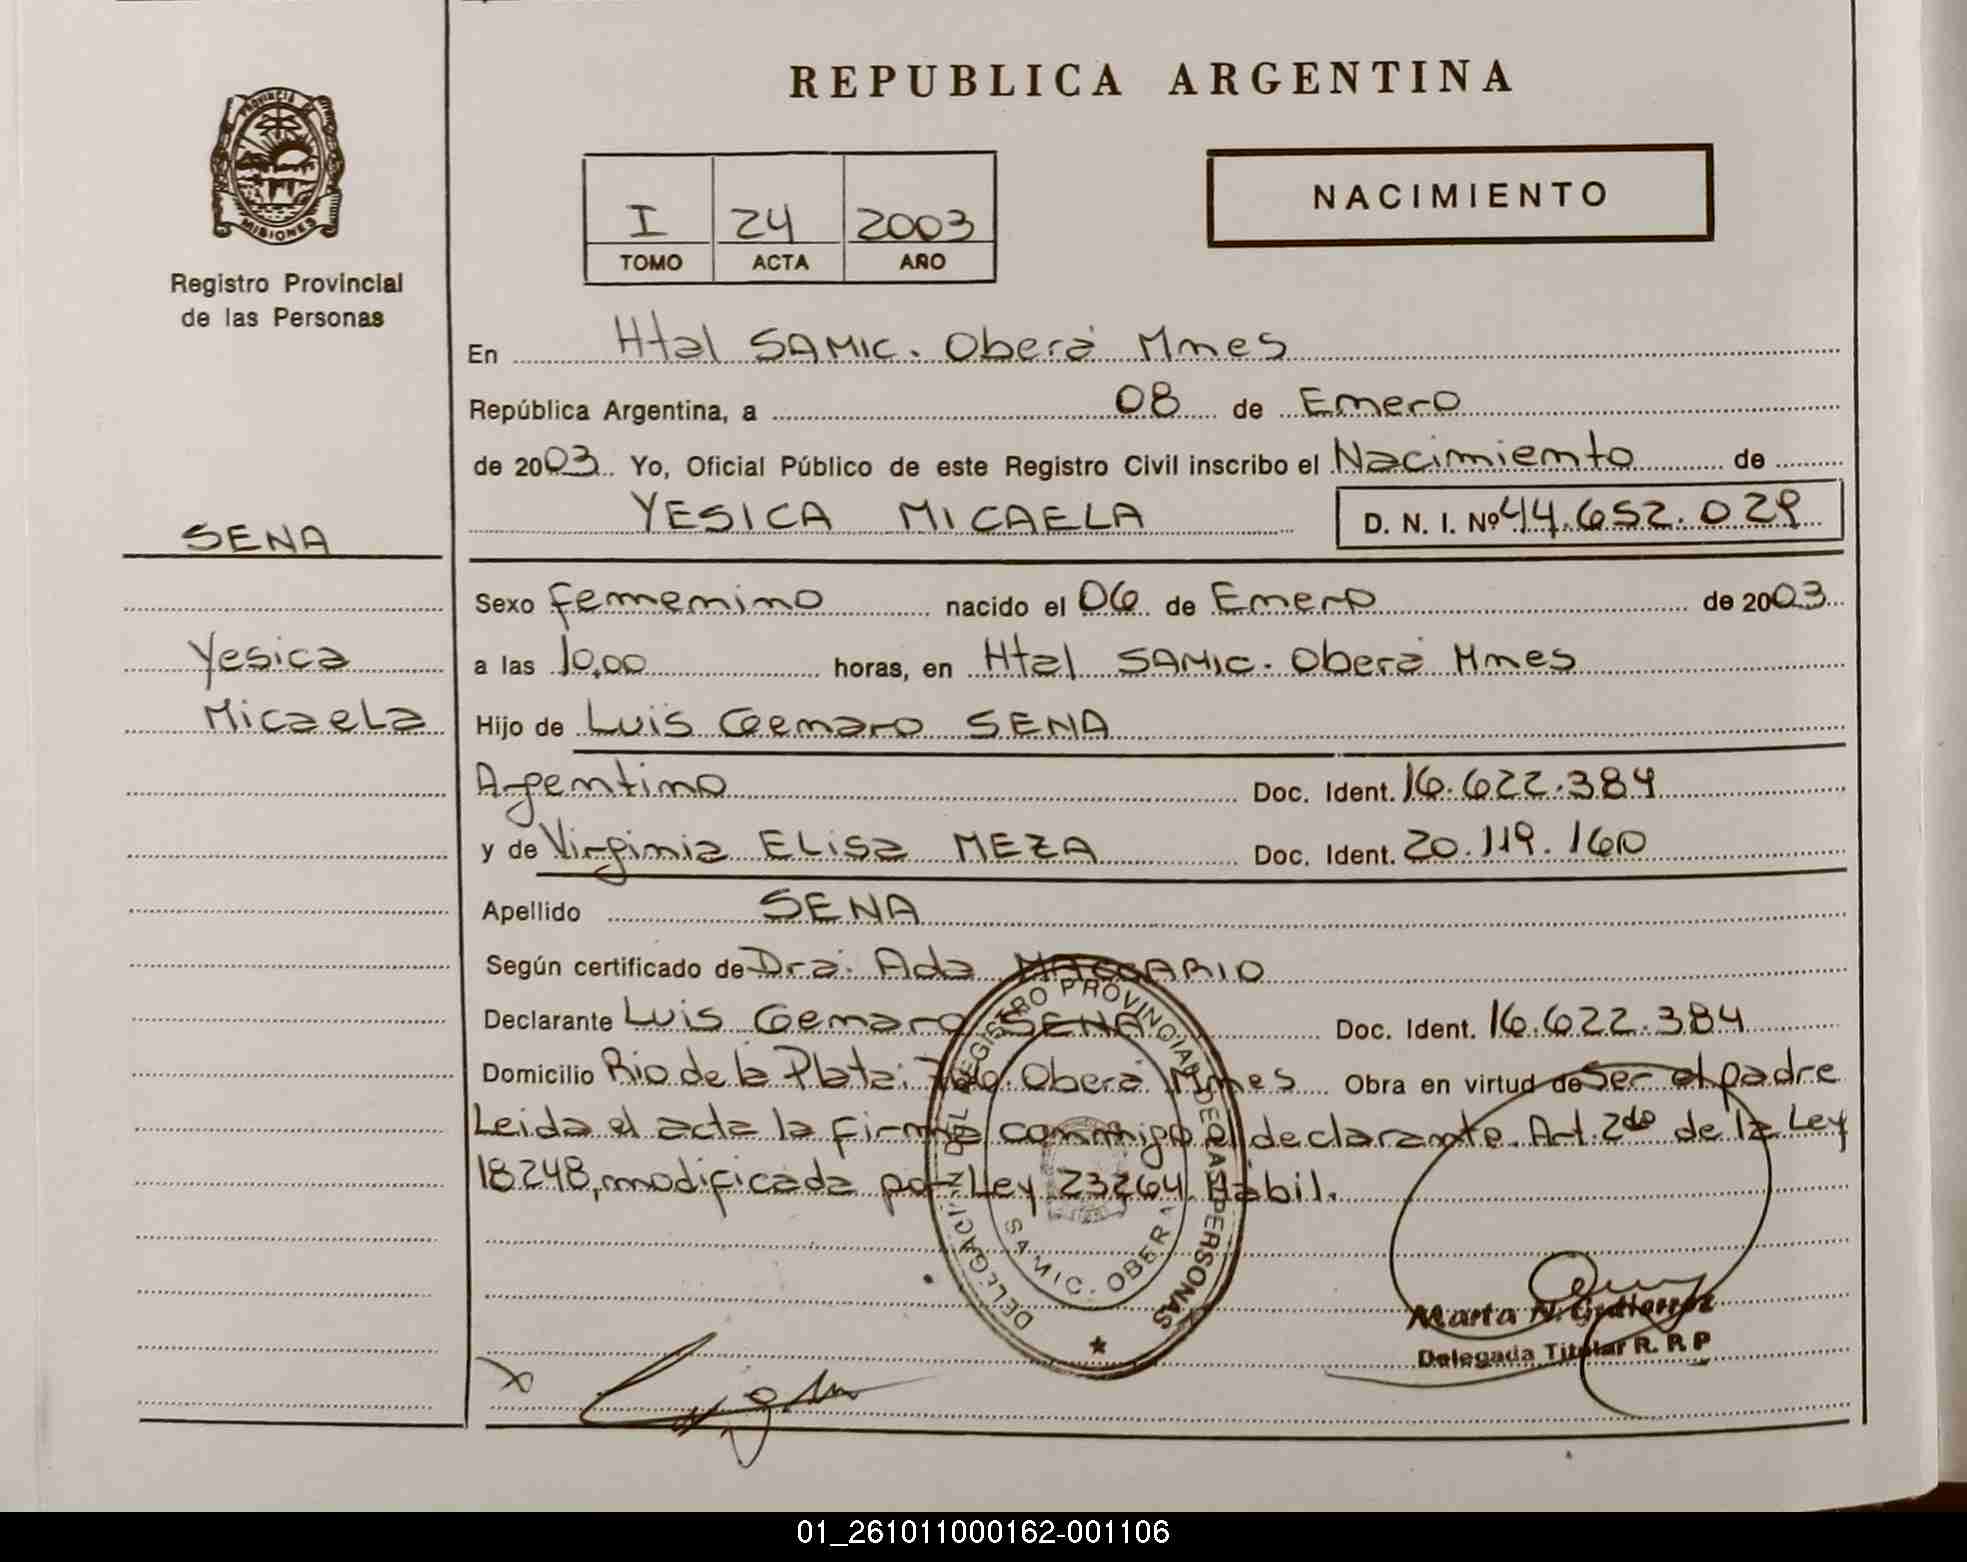 REPUBLICA ARGENTINA
PROVINCIA DE
MISIONES
Registro Provincial
de las Personas
NACIMIENTO
I 24 2003
TOMO ACTA AÑO
En Htal SAMIC. Oberá Mnes
República Argentina, a 08 de Enero
de 2003 Yo, Oficial Público de este Registro Civil inscribo el Nacimiento de
YESICA MICAELA D. N. I. Nº 44.652.029
SENA
Sexo femenino nacido el 06 de Enero de 2003
Yesica
a las 10,00 horas, en Htal SAMIC. Oberá Mnes
Micaela
Hijo de Luis Genaro SENA
Argentino Doc. Ident. 16.622.384
y de Virginia Elisa MEZA Doc. Ident. 20.119.160
Apellido SENA
Según certificado de Dra. Ada
Declarante Luis Genaro SENA Doc. Ident. 16.622.384
Domicilio Rio de la Plata. Oberá Mnes Obra en virtud de Ser el padre
Leida el acta la firma conmigo el declarante. Art. 2do de la Ley
18248, modificada por Ley 23264. Habil.
DELEGACION DEL REGISTRO PROVINCIAL DE LAS PERSONAS
SAMIC. OBERA
Marta N. Gutierrez
Delegada Titular R. R P
01_261011000162-001106